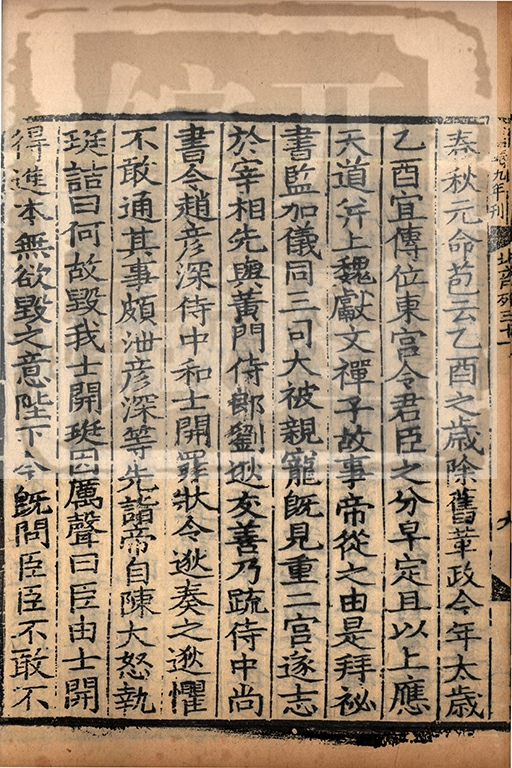 春秋元命苞云乙酉之歲除舊革政今年太歲
乙酉宜傳位東宮令君臣之分早定且以上應
天道并上魏獻文禪子故事帝從之由是拜祕
書監加儀同三司大被親寵旣見重二宮遂志
於宰相先與黃門侍郎劉逖友善乃䟽侍中尚
書令趙彦深侍中和士開罪狀令逖奏之逖懼
不敢通其事頗泄彦深等先詣帝自陳大怒執
珽詰曰何故毀我士開珽因厲聲曰臣由士開
得進本無欲毀之意陛下今旣問臣臣不敢不
九年刊